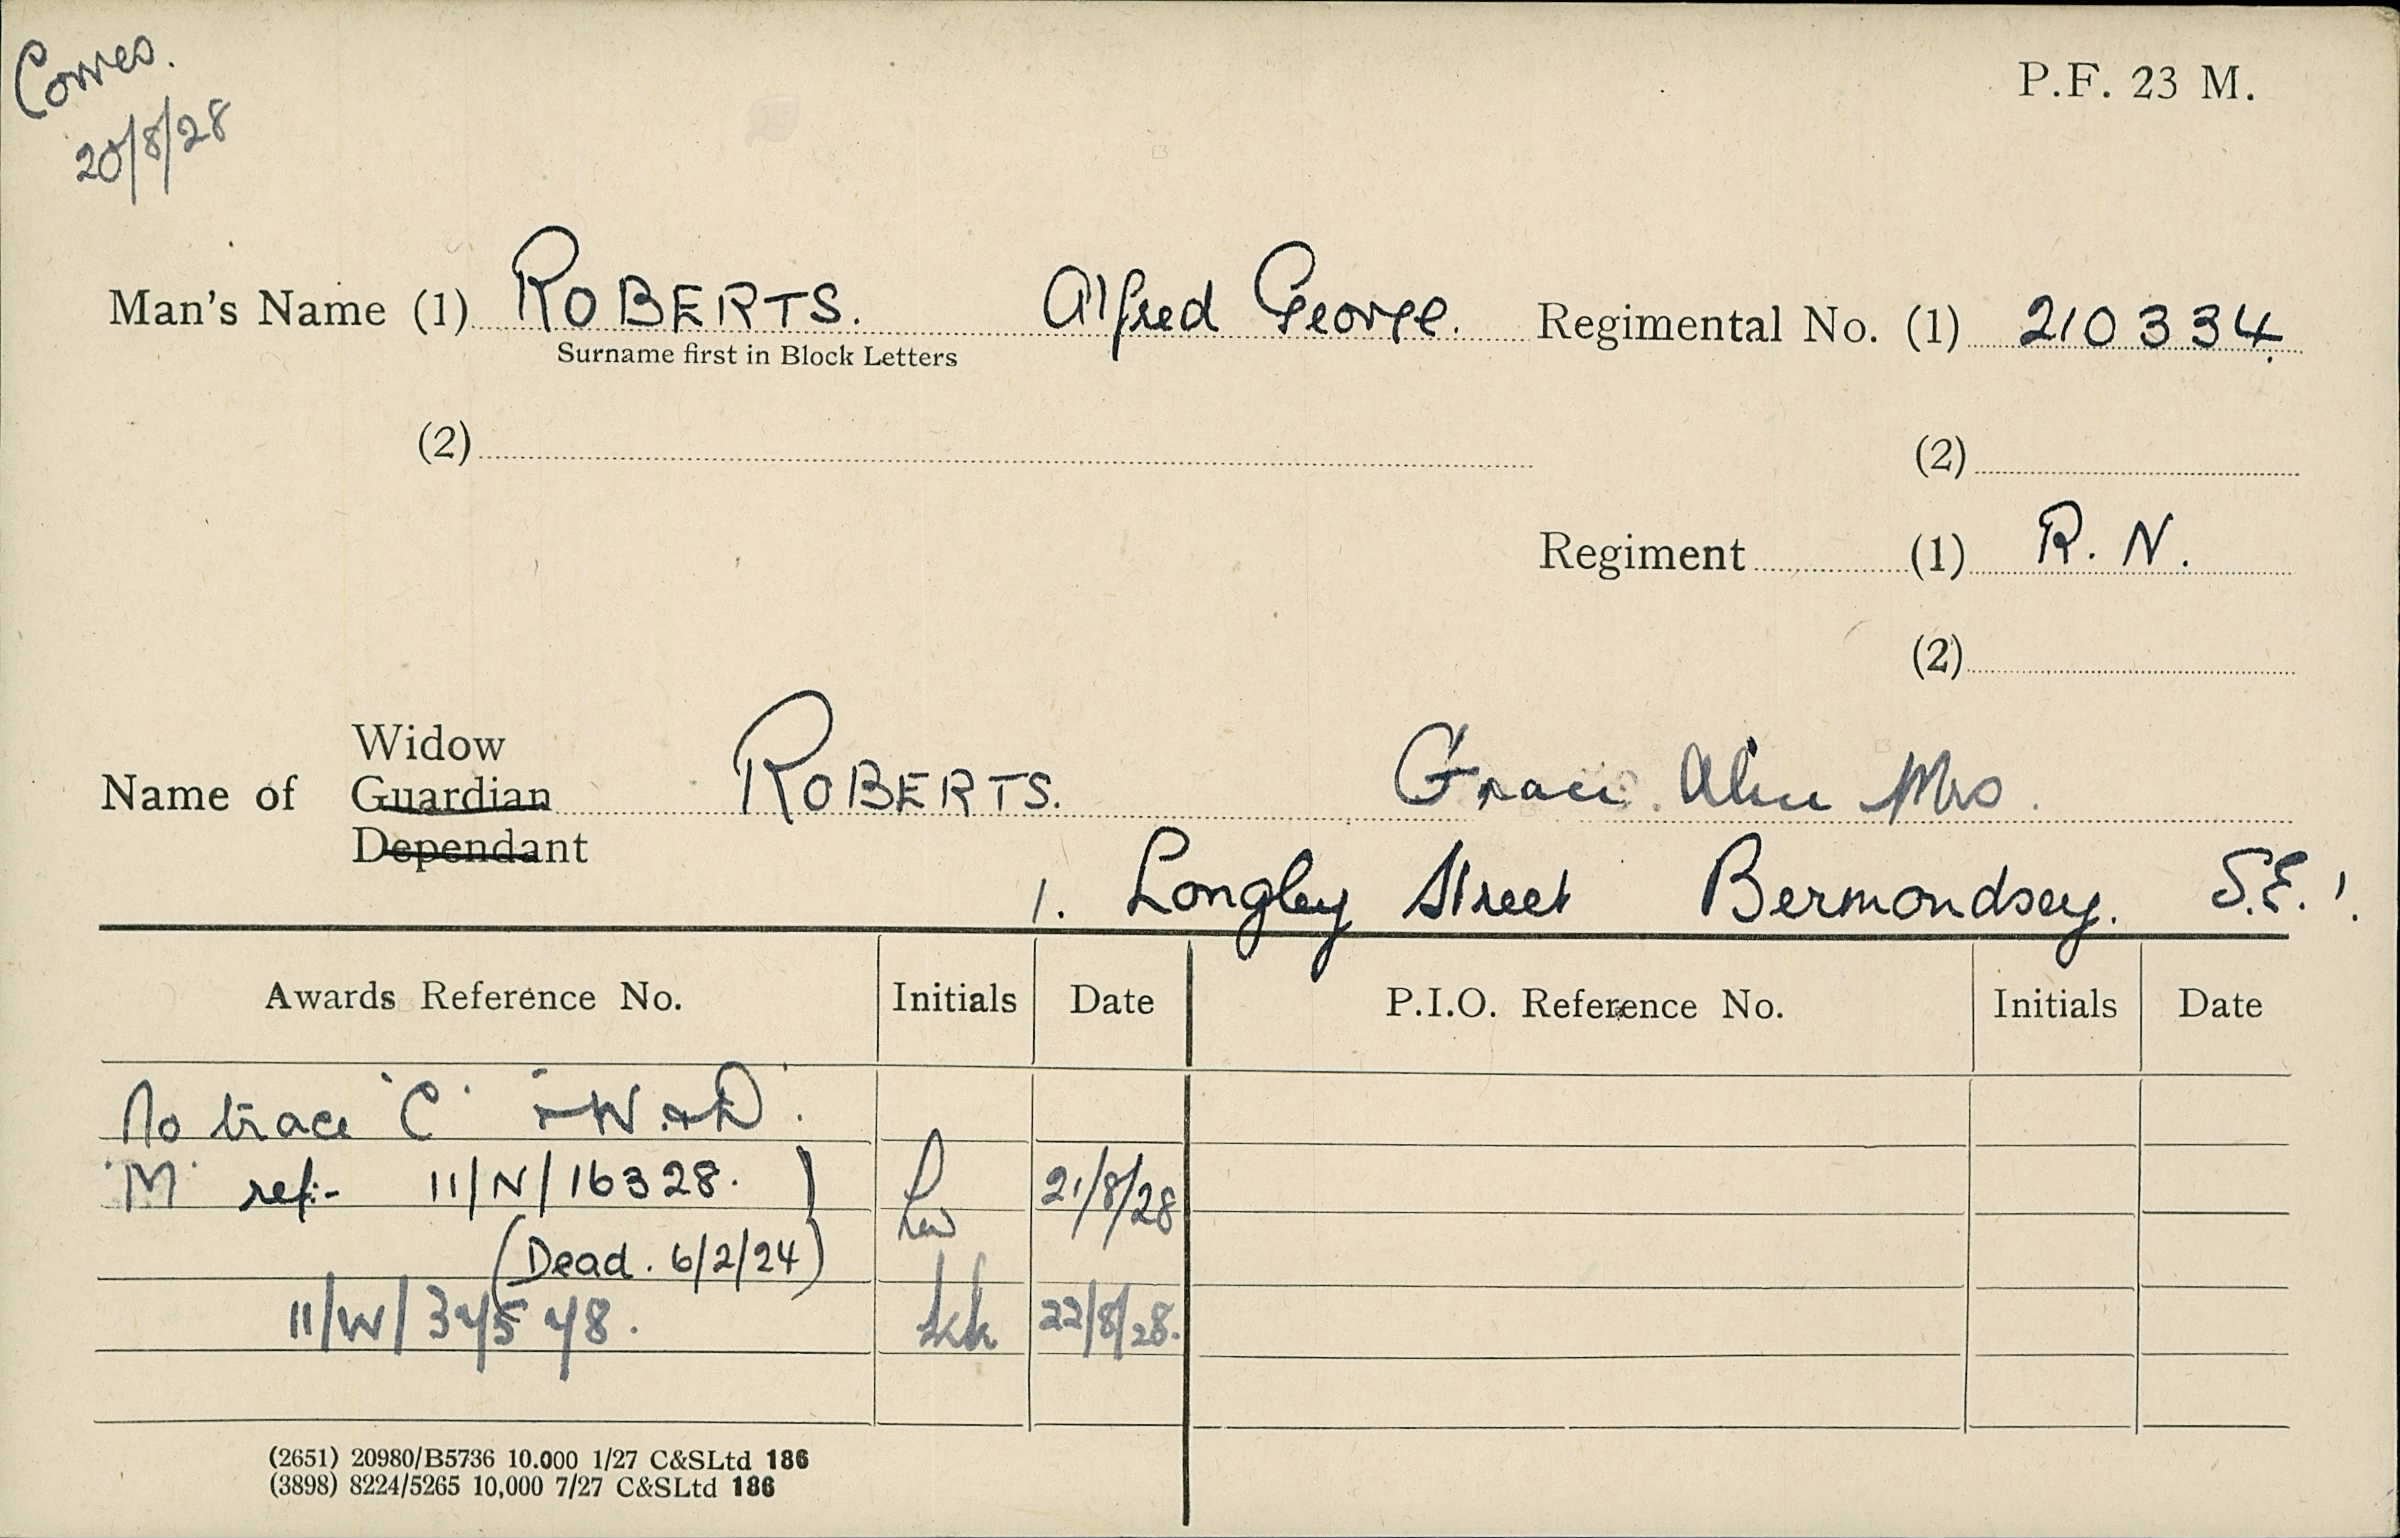 Corres.
20/8/28
P.F. 23 M.
Man's Name (1) ROBERTS. Alfred George. Regimental No. (1) 210334.
Surname first in Block Letters
(2) (2)
Regiment (1) R. N.
(2)
Widow
Name of Guardian ROBERTS. Grace Alice Mrs.
Dependant
1. Longley Street Bermondsey. S.E.1.
Awards Reference No. Initials Date P.I.O. Reference No. Initials Date
No trace "C" + "W. & D".
"M" ref:- 11/N/16328. 21/8/28
(Dead. 6/2/24)
11/W/37578. 22/8/28.
(2651) 20980/B5736 10.000 1/27 C&SLtd 186
(3898) 8224/5265 10,000 7/27 C&SLtd 186